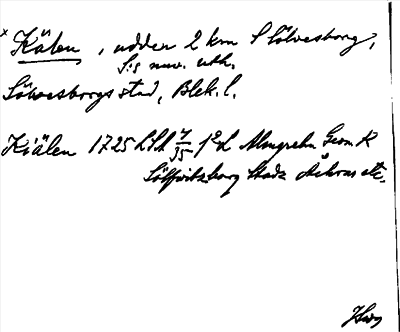 x Kälen, udden 2 km S Sölvesborg,
S:s nuv. utk.
Sölvesborgs stad, Blek. l.
Kiälen 1725 LSA 7/35 1º Almgrehn Geom K
Sölfwitzborg Stadz